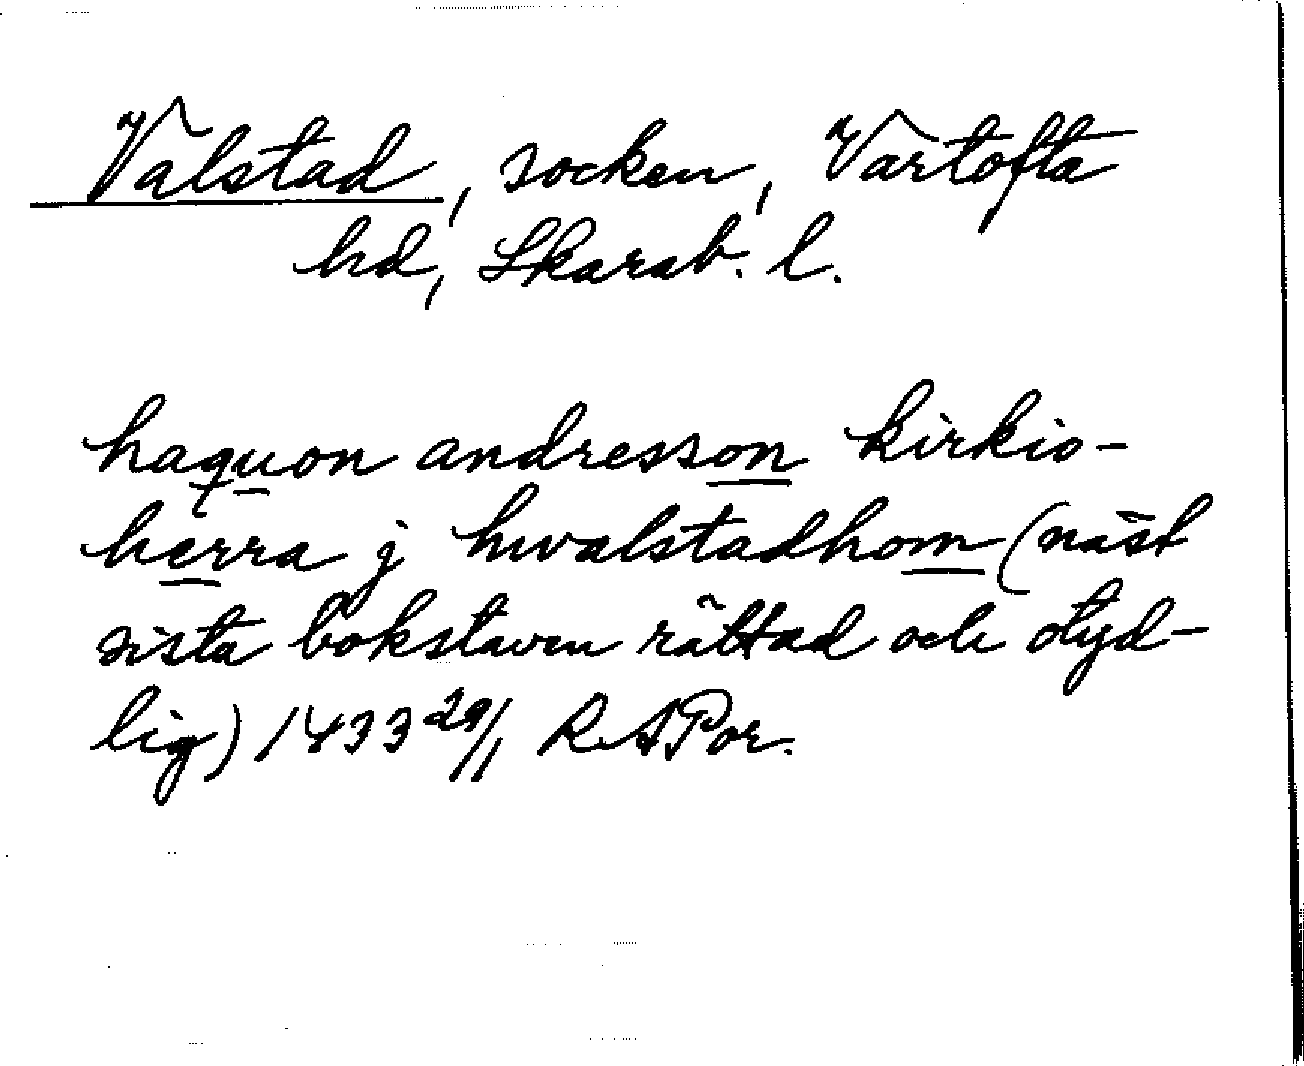 Valstad, socken, Vartofta
hd, Skarab. l.
haquon andresson kirkio-
herra j hwalstadhom (näst
sista bokstaven rättad och otyd-
lig) 1433 29/1 RAPor.